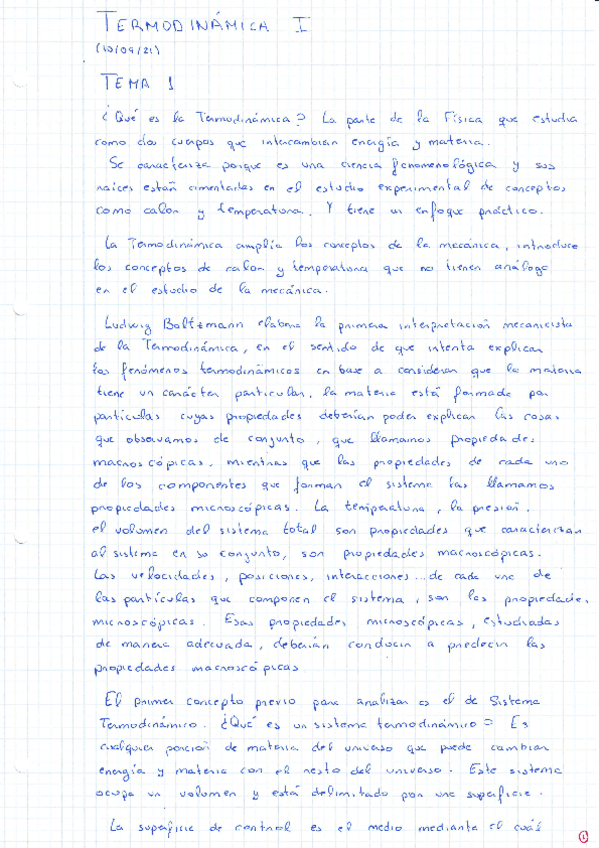 TERMODINÁMICA I
(10/09/21)
TEMA 1
¿Qué es la Termodinámica? La parte de la Física que estudia
como dos cuerpos que intercambian energía y materia.
Se caracteriza porque es una ciencia fenomenológica y sus
raíces están cimentadas en el estudio experimental de conceptos
como calor y temperatura. Y tiene un enfoque práctico.
La Termodinámica amplía los conceptos de la mecánica, introduce
los conceptos de calor y temperatura que no tienen análogo
en el estudio de la mecánica.
Ludwig Boltzmann elabora la primera interpretación mecanicista
de la Termodinámica, en el sentido de que intenta explicar
los fenómenos termodinámicos en base a considerar que la materia
tiene un carácter particular, la materia está formada por
partículas cuyas propiedades deberían poder explicar las cosas
que observamos de conjunto, que llamamos propiedades
macroscópicas, mientras que las propiedades de cada uno
de los componentes que forman el sistema las llamamos
propiedades microscópicas. La temperatura, la presión,
el volumen del sistema total son propiedades que caracterizan
al sistema en su conjunto, son propiedades macroscópicas.
Las velocidades, posiciones, interacciones... de cada una de
las partículas que componen el sistema, son las propiedades
microscópicas. Esas propiedades microscópicas, estudiadas
de manera adecuada, deberían conducir a predecir las
propiedades macroscópicas
El primer concepto previo para analizar es el de Sistema
Termodinámico. ¿Qué es un sistema termodinámico? Es
cualquier porción de materia del universo que puede cambiar
energía y materia con el resto del universo. Este sistema
ocupa un volumen y está delimitado por una superficie.
La superficie de control es el medio mediante el cuál
1